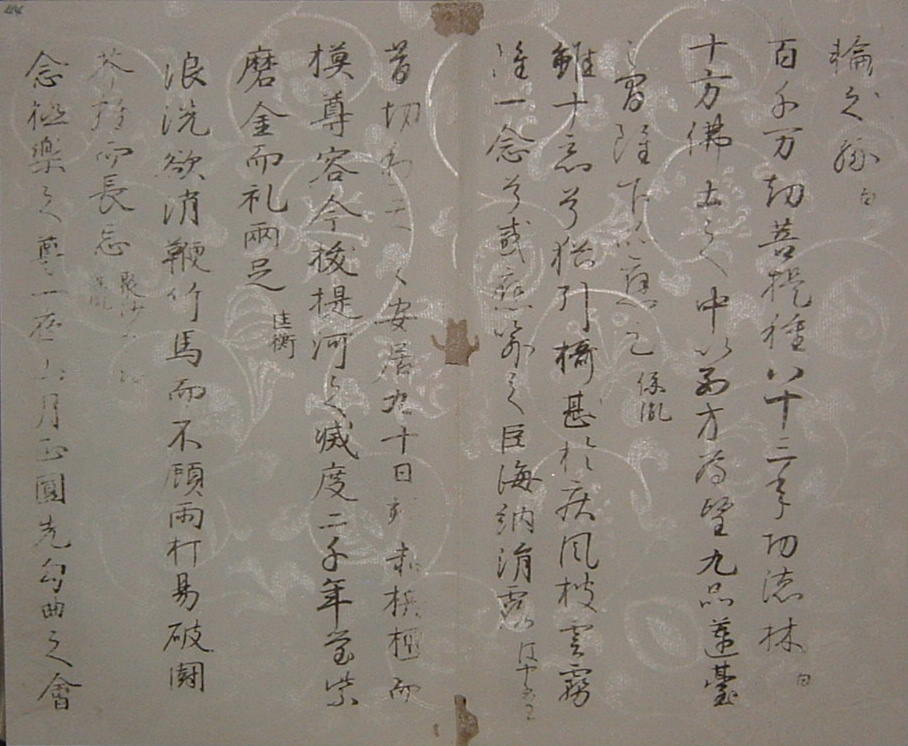 輪之縁 白
百千万劫菩提種八十三年功徳林 白
十方佛土之中以西方為望九品蓮臺
之間雖下品應足 保胤
雖十悪兮猶引摂甚於疾風披雲霧
雖一念兮感應喩之巨海納涓露
昔忉利天之安居九十日刻赤栴檀而
摸尊容今拔提河之滅度二千年瑩紫
磨金而礼兩足 匡衡
浪洗欲消鞭竹馬而不顧雨打易破闘
芥鶏而長忘 聚沙
念極樂之尊一夜山月正圓先勾曲之會